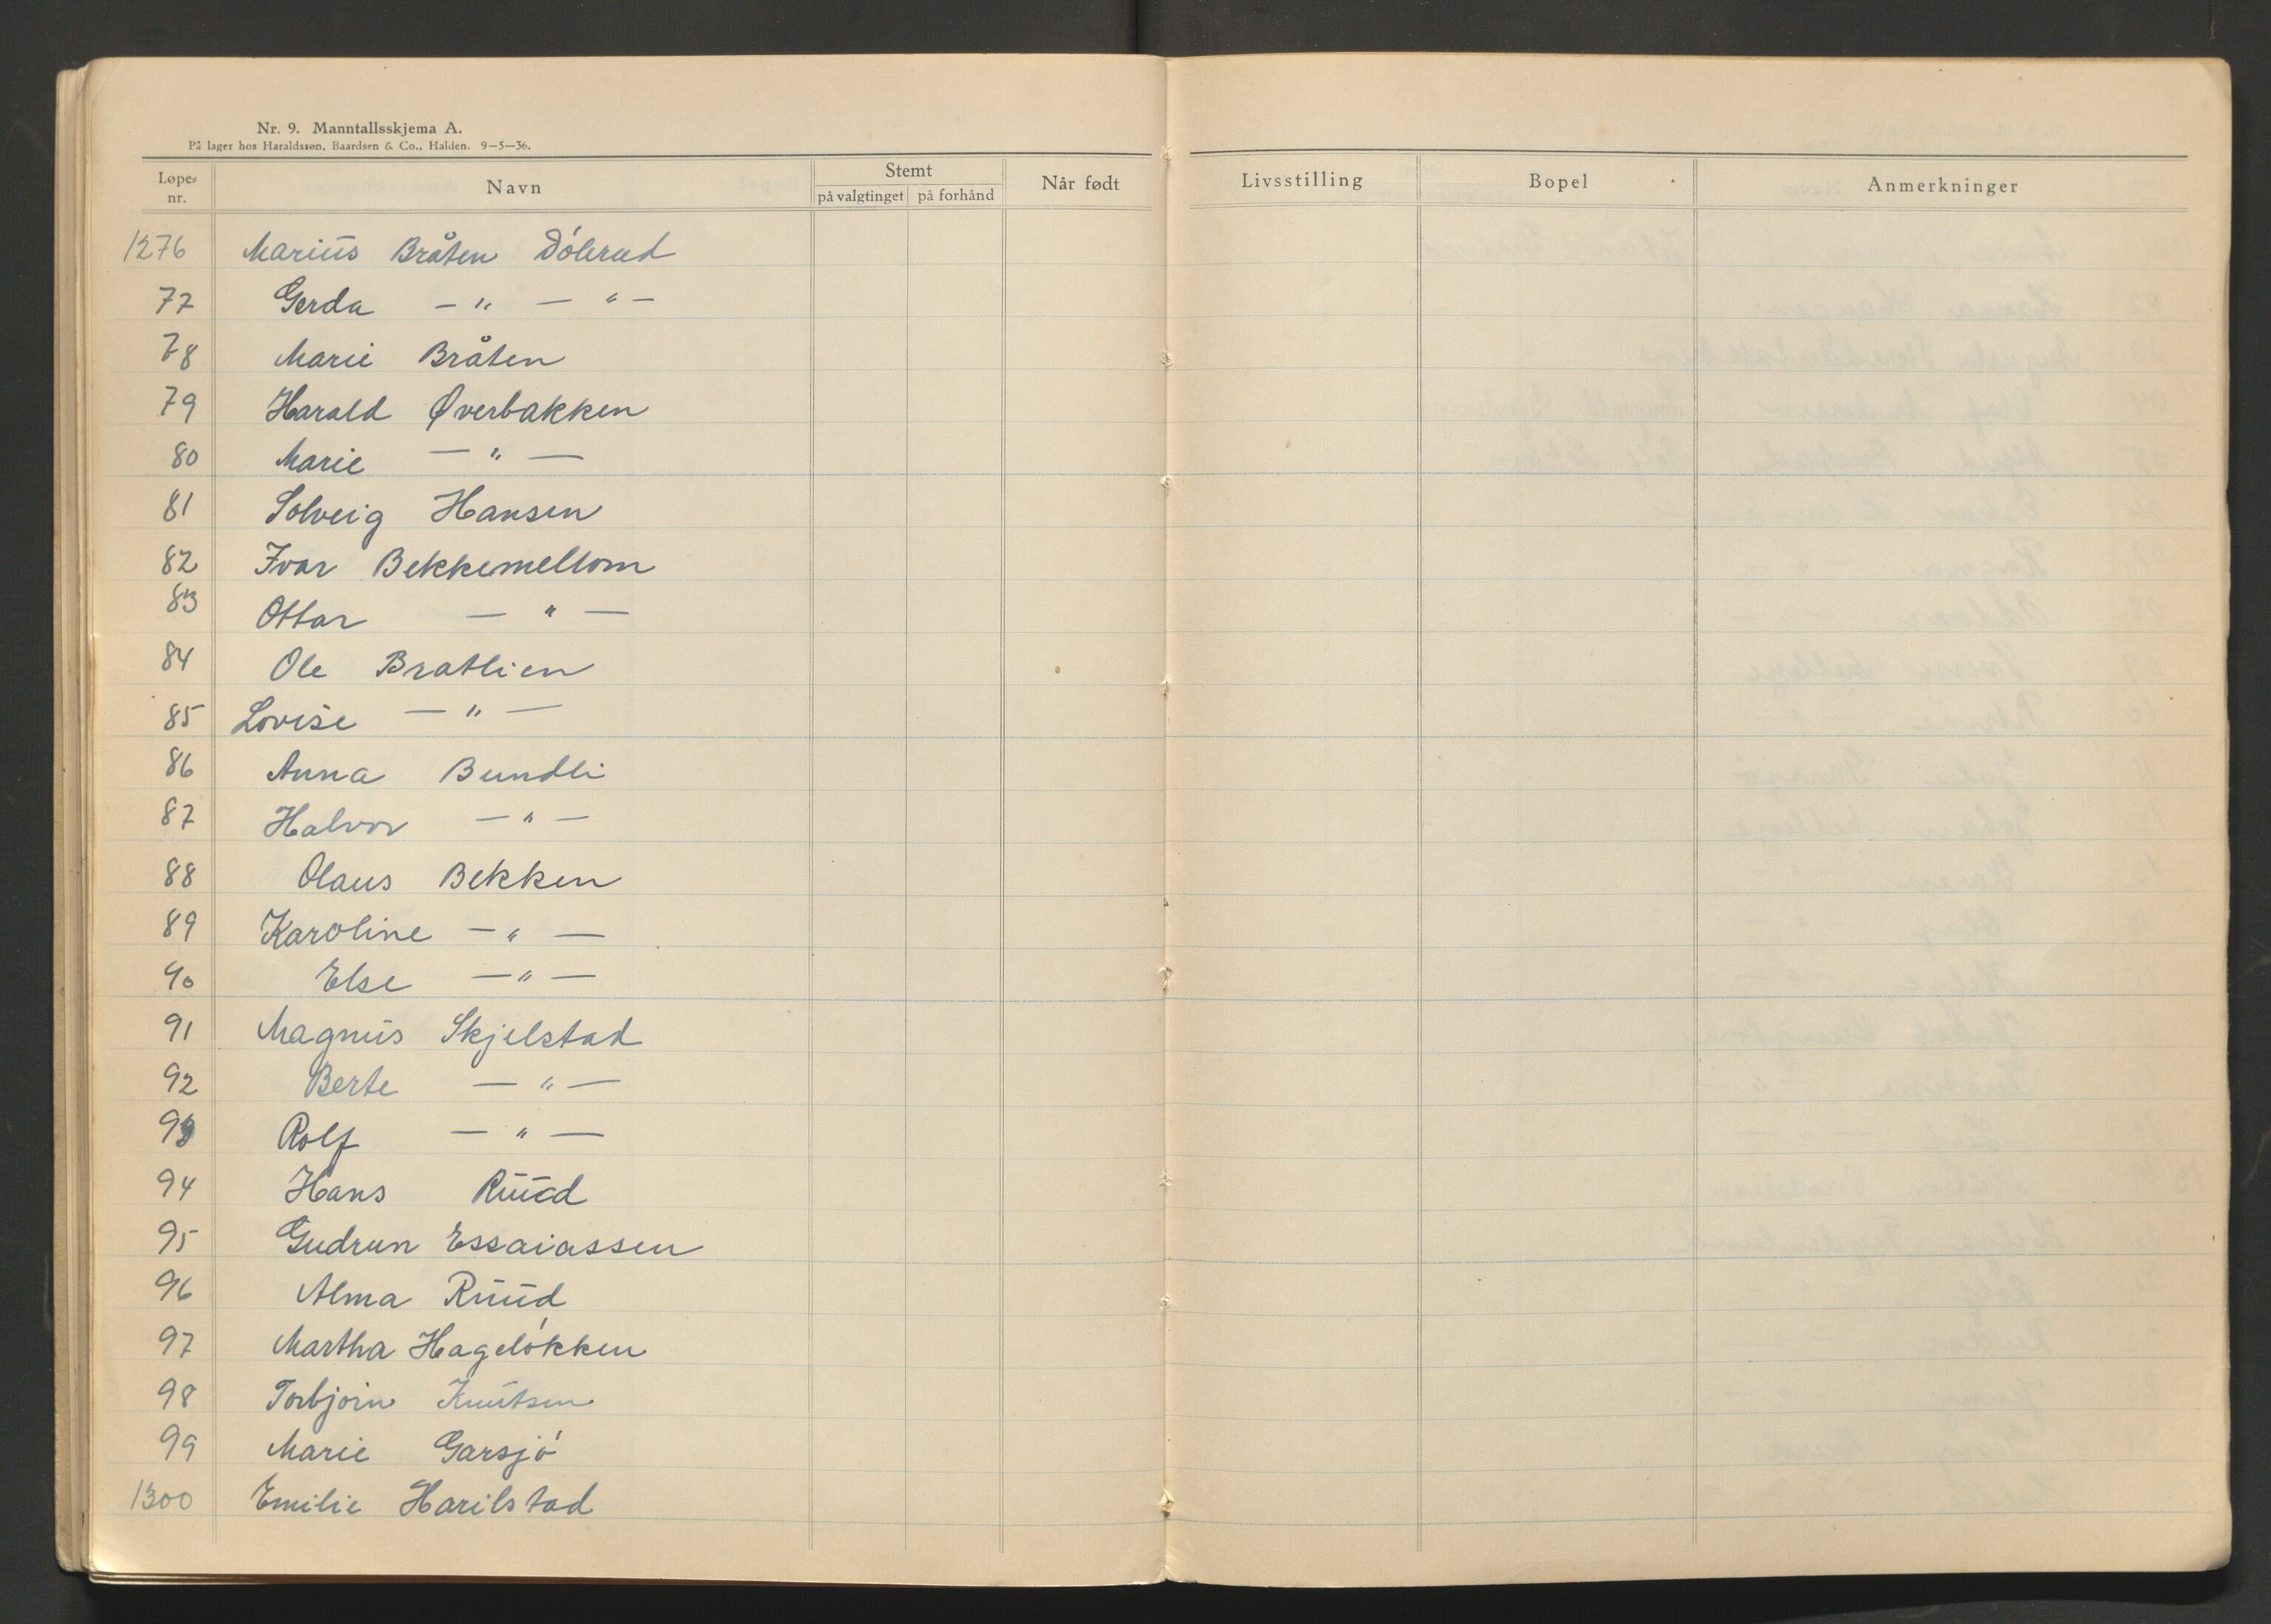 Nr. 9. Manntallsskjema A.
På lager hos Haraldssøn, Baardsen & Co., Halden. 9—5—36.
Løpe-nr. Navn Stemt på valgtinget på forhånd Når født Livsstilling Bopel Anmerkninger
1276 Marius Bråten Dólerud
77 Gerda — " — " —
78 Marie Bråten
79 Harald Øverbakken
80 Marie — " —
81 Solveig Hansen
82 Ivar Bekkemellom
83 Ottar — " —
84 Ole Bratlien
85 Lovise — " —
86 Anna Bundli
87 Halvor — " —
88 Olaus Bekken
89 Karoline — " —
90 Else — " —
91 Magnus Skjelstad
92 Berte — " —
93 Rolf — " —
94 Hans Ruud
95 Gudrun Essaiassen
96 Alma Ruud
97 Martha Hagelókken
98 Torbjørn Knutsen
99 Marie Garsjó
1300 Emilie Harilstad